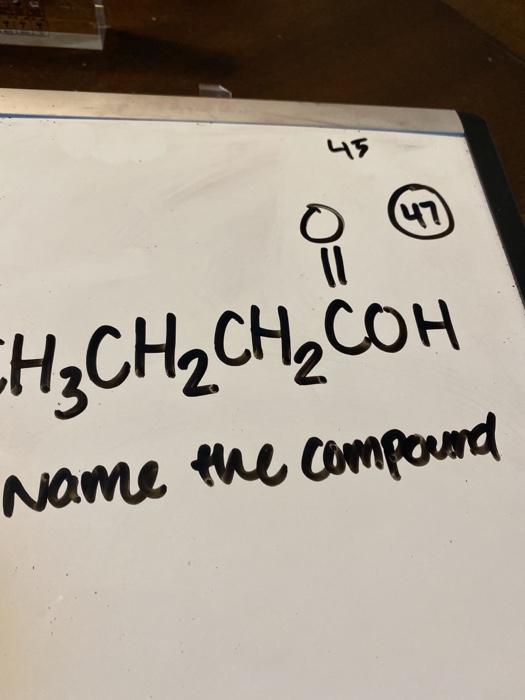 45
47
O
||
CH₃CH₂CH₂COH
Name the compound